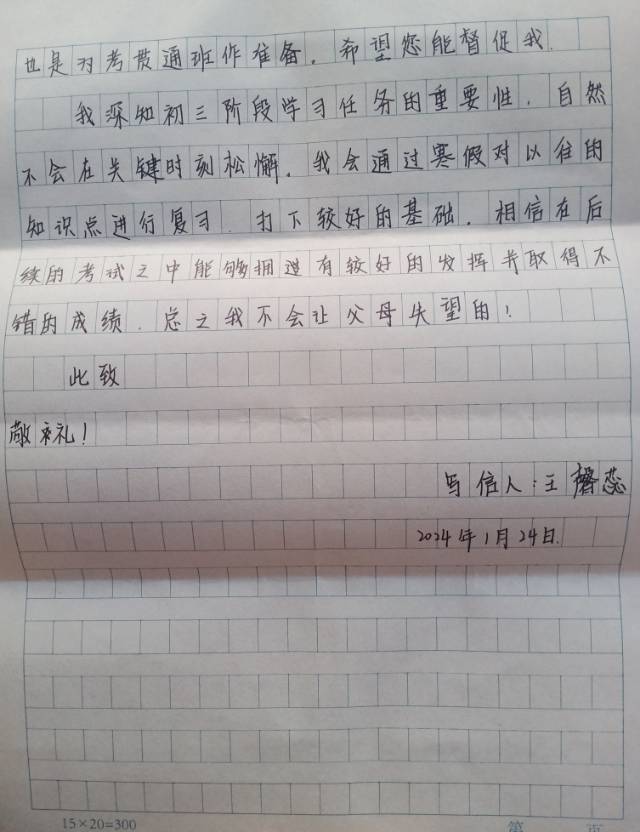 也是为考贯通班作准备。希望您能督促我。
我深知初三阶段学习任务的重要性，自然
不会在关键时刻松懈。我会通过寒假对以往的
知识点进行复习，打下较好的基础，相信在后
续的考试之中能够拥过有较好的发挥并取得不
错的成绩。总之我不会让父母失望的！
此致
敬礼！
写信人：王馨蕊
2024年1月24日
15×20=300
第 页